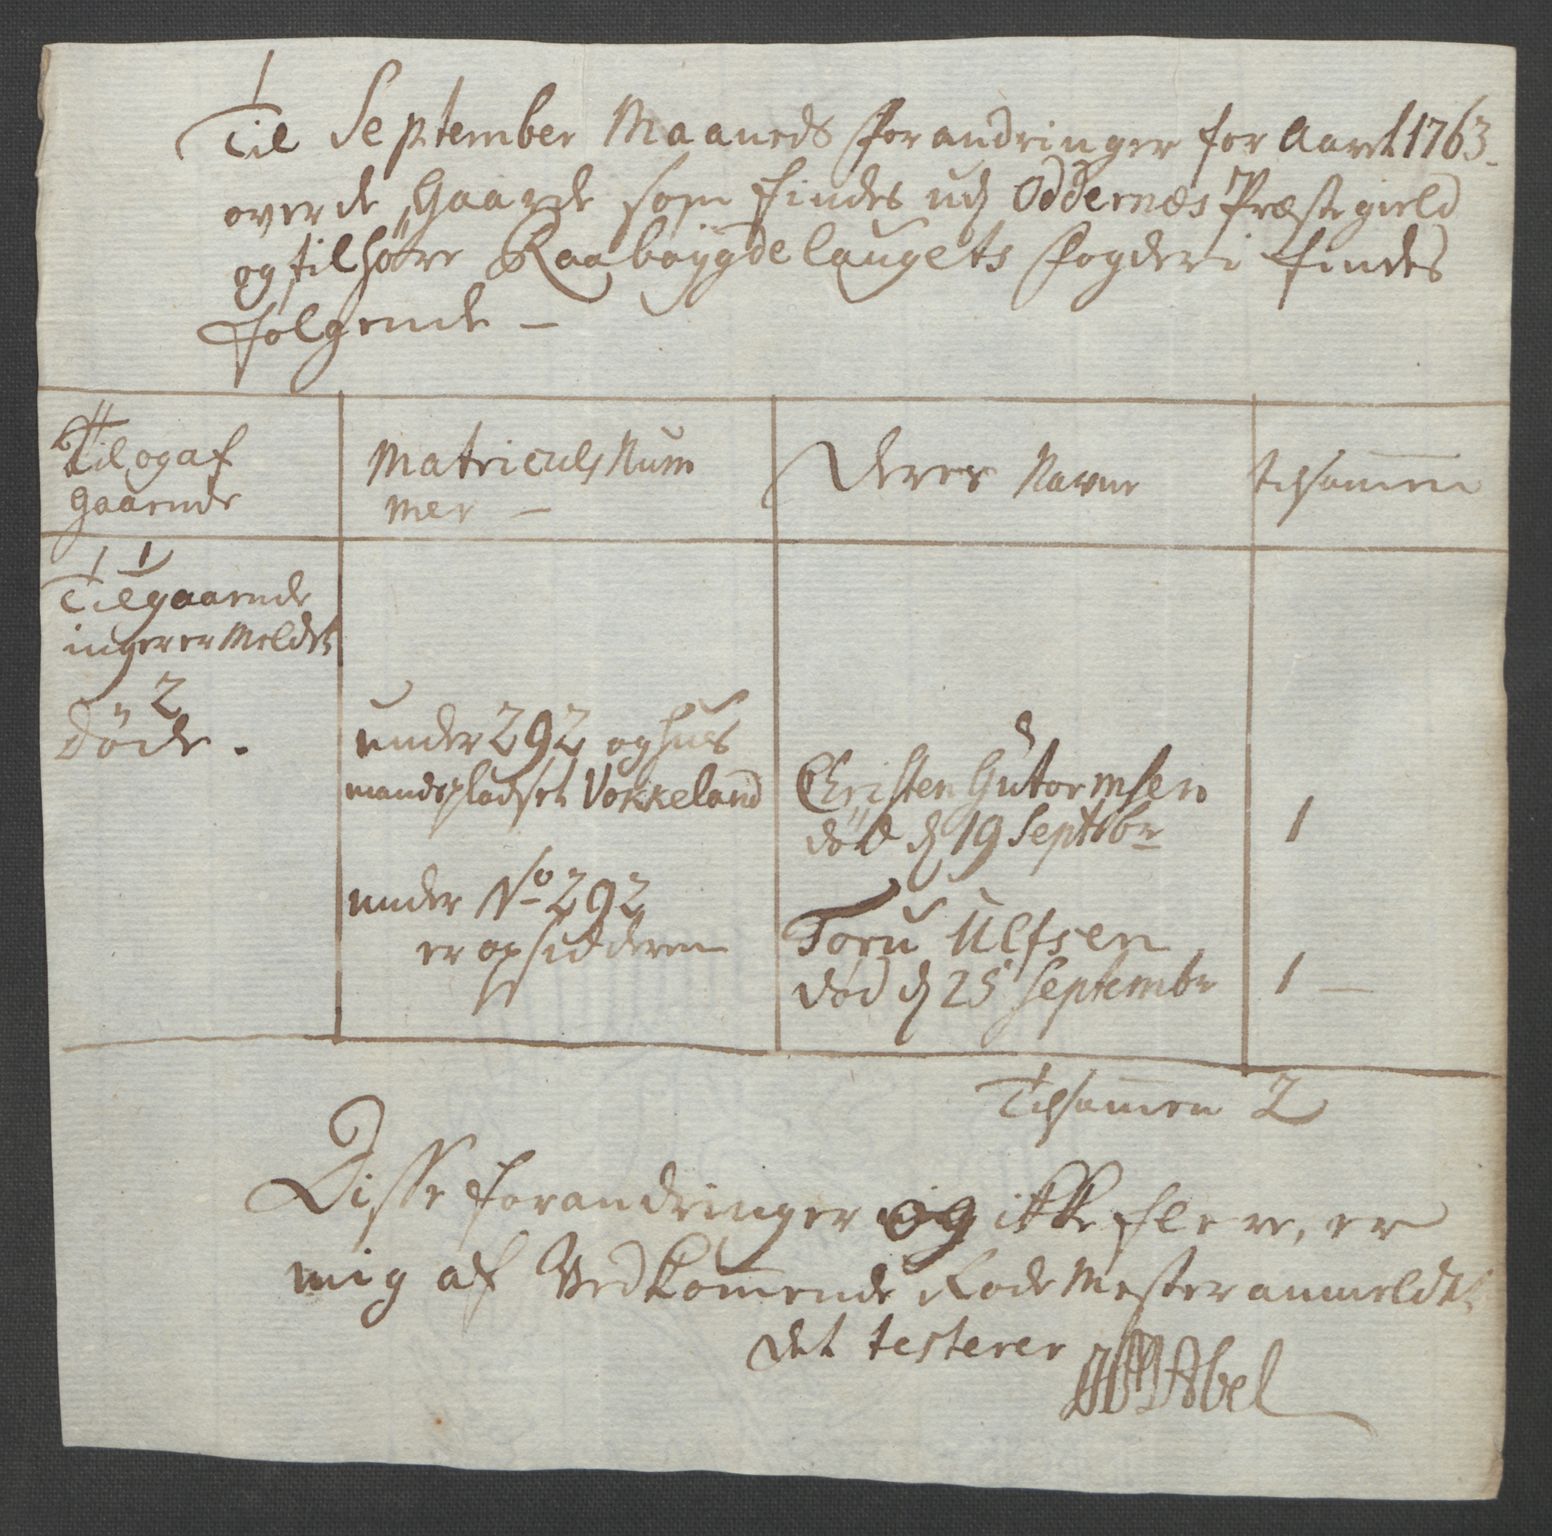 Til September Maaneds forandringer for Aaret 1763.
over de Gaarde som findes udj Oddernæs Præstegield
og tilhøre Raabøygdelaugets fogderi findes
følgende —
Til og af
gaaende
Matriculs Num
mer —
Deres Navne
tilsamen
Tilgaaende
inger er Meldet
2
døde.
under 292 og hus
mandspladset Vokkeland
Christen Gutormsen
død d 19 Septbr
1
under No 292
er opsidderen
Toru Ulfsen
død d 25 Septembr
1 —
Tilsamen 2
Disse forandringer og ikke flere, er
mig af Vedkomende Rode Mester anmeldet
det testerer
Abel